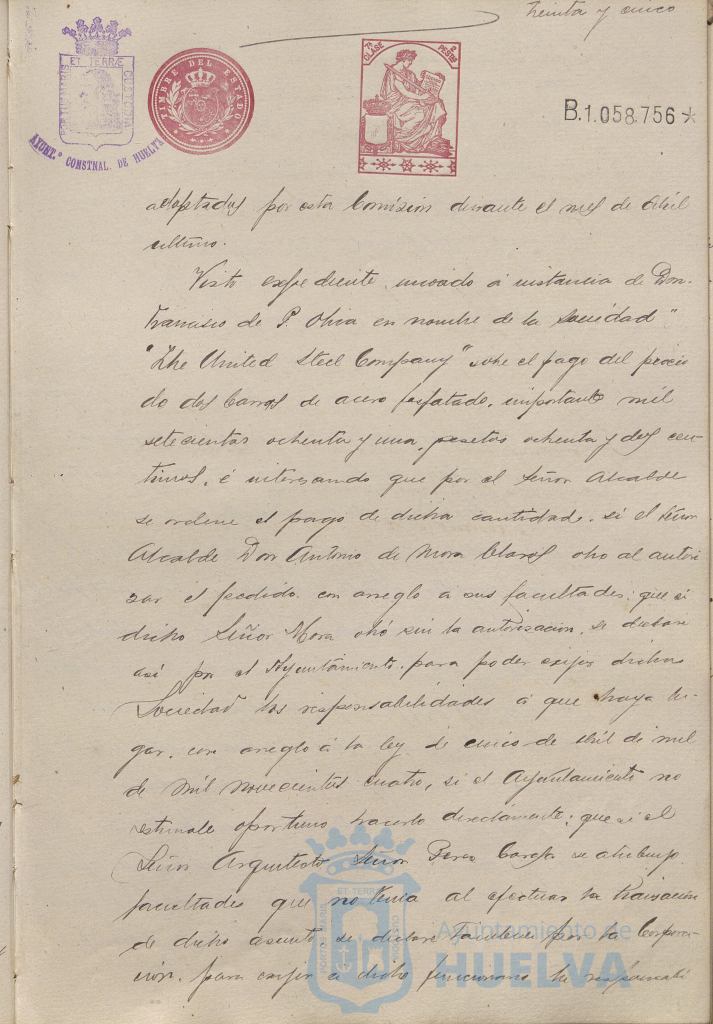 treinta y cinco
ET TERRÆ
PORTUS MARIS
CUSTODIA
AYUNT.º CONSTNAL. DE HUELVA
TIMBRE DEL ESTADO
7ª CLASE 2 PESTAS
B.1.058.756*
adoptados por esta Comisión durante el mes de Abril
ultimo.
Visto expediente incoado á instancia de Don
Francisco de P. Oliva en nombre de la Sociedad "
"The United Steel Company" sobre el pago del precio
de dos barros de acero fosfatado, importante mil
setecientas ochenta y una pesetas ochenta y dos cen-
timos, é interesando que por el Señor Alcalde
se ordene el pago de dicha cantidad, si el Señor
Alcalde Don Antonio de Mora Claros obro al autori
zar el pedido con arreglo á sus facultades; que si
dicho Señor Mora obró sin la autorizacion, se declare
así por el Ayuntamiento para poder exijir dicha
Sociedad las responsabilidades á que haya lu-
gar, con arreglo á la ley de cinco de Abril de mil
de mil novecientos cuatro, si el Ayuntamiento no
estimase oportuno hacerlo directamente; que si el
Señor Arquitecto Señor Perez Carasa se atribuyó
facultades que no tenia al efectuar la tramitación
de dicho asunto se declare tambien por la Corpora-
ción, para exijir á dicho funcionario la responsabi
Ayuntamiento de
HUELVA